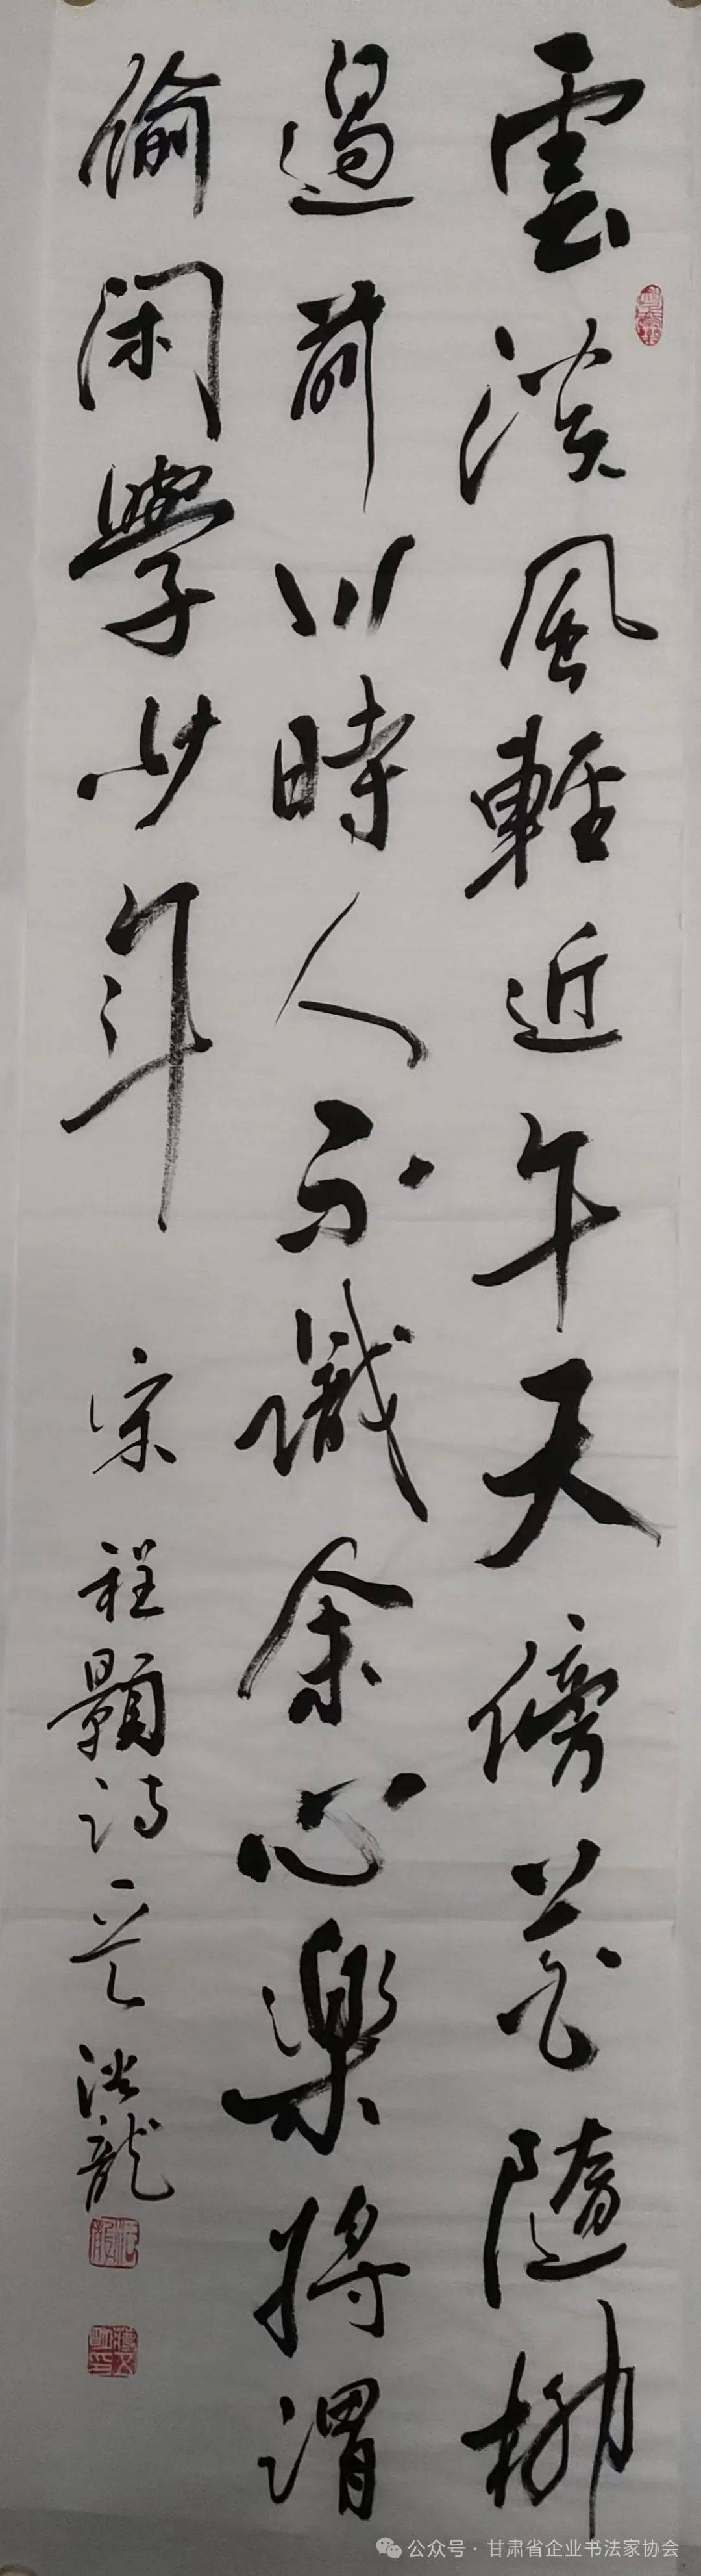 雲淡風輕近午天傍花隨柳
過前川時人不識余心樂將謂
偷閑學少年 宋 程顥詩 龍
公众号 · 甘肃省企业书法家协会